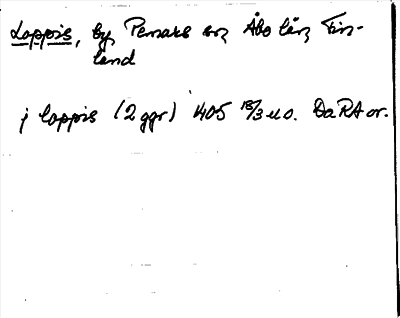 Loppis, by Pemars sn, Åbo län, Fin-
land
i loppis (2 ggr) 1405 18/3 u o. Da RA or.